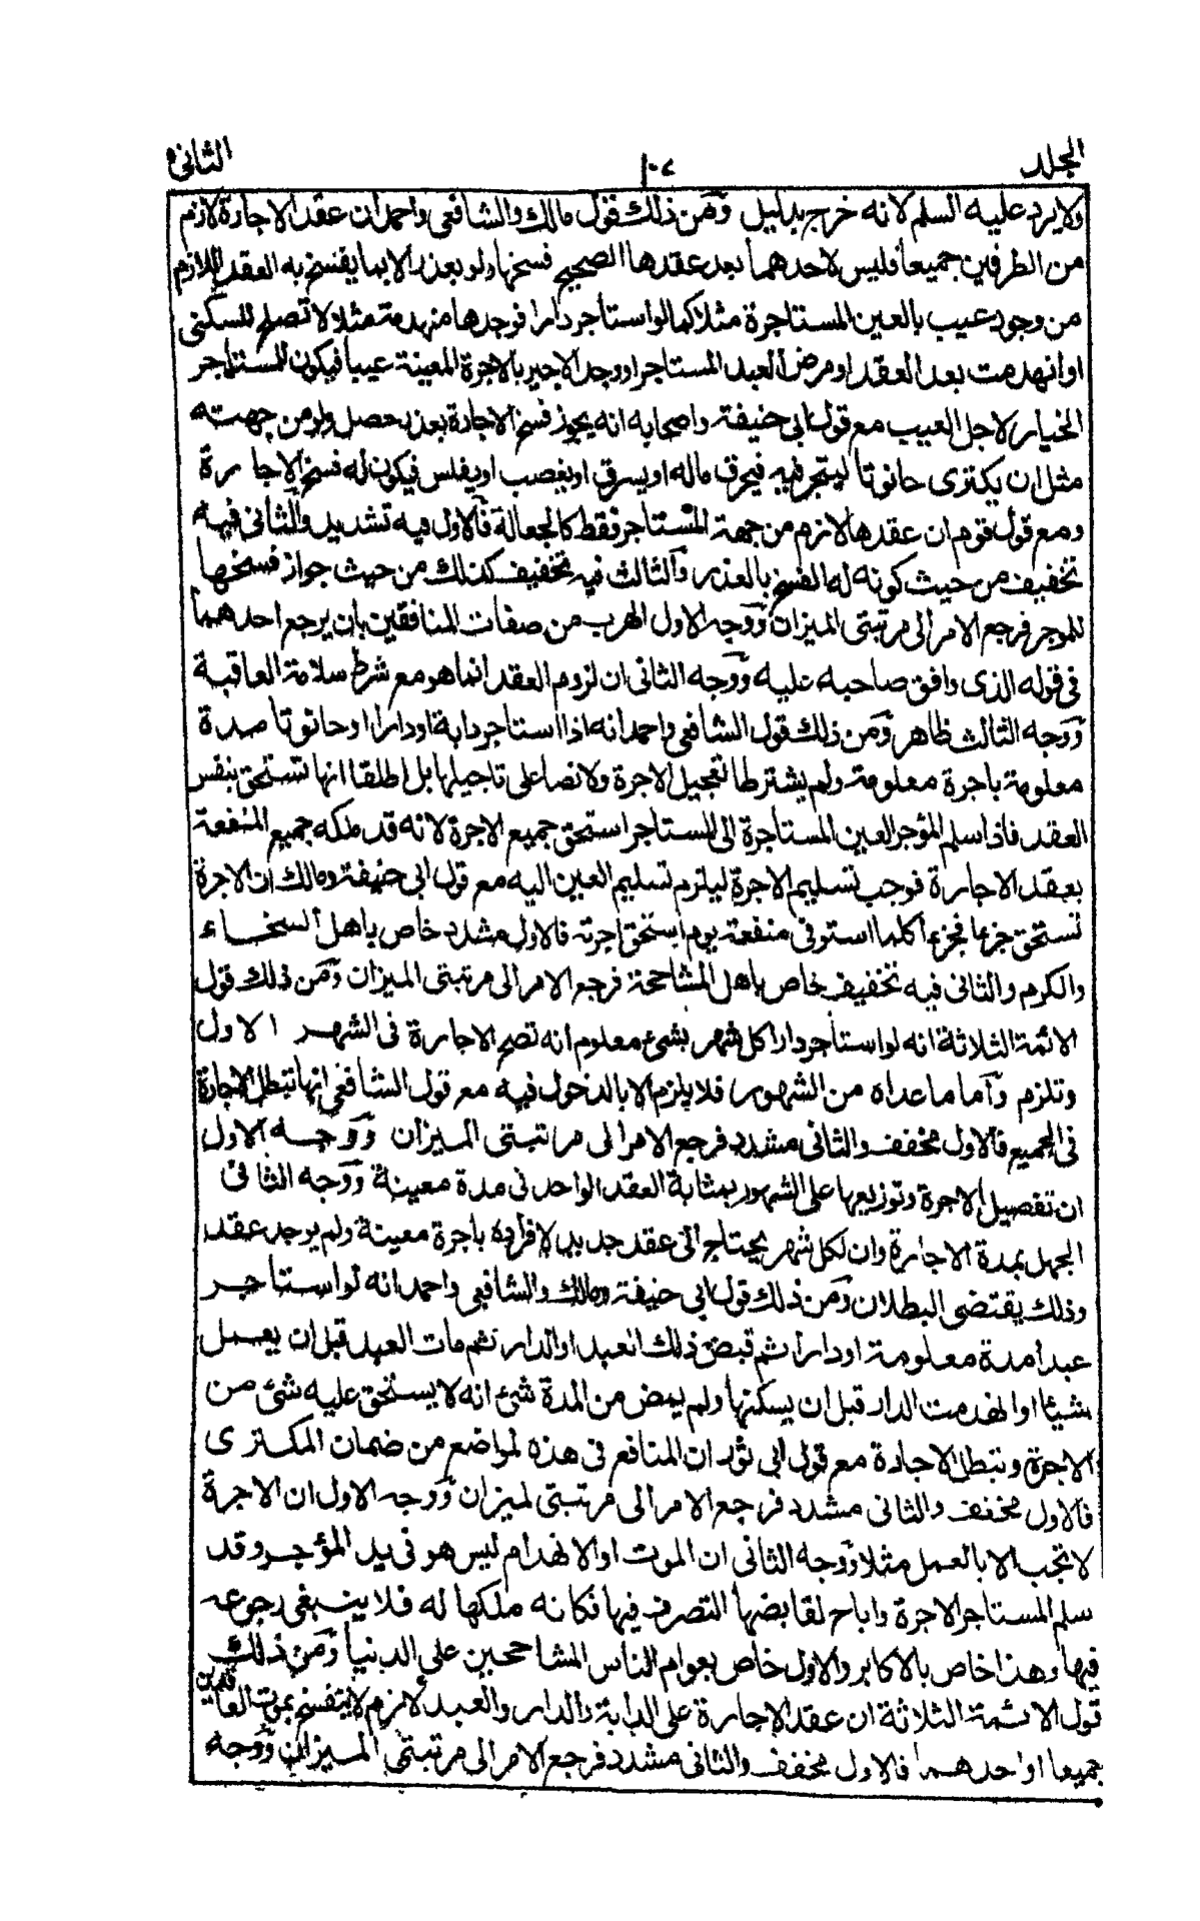 المجلد
١٠٧
الثانى
ولا يرد عليه السلم لانه خرج بدليل ومن ذلك قول مالك والشافعى واحمد ان عقد الاجارة لازم
من الطرفين جميعا فليس لاحدهما بعد عقدها الصحيح فسخها ولو بعذر الا بما يفسخ به العقد اللازم
من وجود عيب بالعين المستاجرة مثلا كما لو استأجر دارا فوجدها منهدمة مثلا لا تصلح للسكنى
او انهدمت بعد العقد او مرض العبد المستاجر او وجد الاجير بالاجرة المعينة عيبا فيكون للمستاجر
الخيار لاجل العيب مع قول ابى حنيفة واصحابه انه يجوز فسخ الاجارة بعذر حصل ولو من جهته
مثل ان يكترى حانوتا ليتجر فيه فيحرق ماله او يسرق او يغصب او يفلس فيكون له فسخ الاجارة
ومع قول قوم ان عقدها لازم من جهة المستاجر فقط كالجعالة فالاول فيه تشديد والثانى فيه
تخفيف من حيث كونه له الفسخ بالعذر والثالث فيه تخفيف كذلك من حيث جواز فسخها
للموجر فرجع الامر الى مرتبتى الميزان ووجه الاول الهرب من صفات المنافقين بان يرجع احدهما
فى قوله الذى وافق صاحبه عليه ووجه الثانى ان لزوم العقد انما هو مع شرط سلامة العاقبة
ووجه الثالث ظاهر ومن ذلك قول الشافعى واحمد انه اذا استاجر دابة او دارا او حانوتا مدة
معلومة باجرة معلومة ولم يشترطا تعجيل الاجرة ولا نصا على تاجيلها بل اطلقا انها تستحق بنفس
العقد فاذا سلم المؤجر العين المستاجرة الى المستاجر استحق جميع الاجرة لانه قد ملكه جميع المنفعة
بعقد الاجارة فوجب تسليم الاجرة ليلزم تسليم العين اليه مع قول ابى حنيفة ومالك ان الاجرة
تستحق جزءا فجزءا كلما استوفى منفعة يوم استحق اجرته فالاول مشدد خاص باهل السخاء
والكرم والثانى فيه تخفيف خاص باهل المشاححة فرجع الامر الى مرتبتى الميزان ومن ذلك قول
الائمة الثلاثة انه لو استأجر دارا كل شهر بشئ معلوم انه تصح الاجارة فى الشهر الاول
وتلزم وأما ماعداه من الشهور فلا يلزم الا بالدخول فيه مع قول الشافعى انها تبطل الاجارة
فى الجميع فالاول مخفف والثانى مشدد فرجع الامر الى مرتبتى الميزان ووجه الاول
ان تفصيل الاجرة وتوزيعها على الشهور بمثابة العقد الواحد فى مدة معينة ووجه الثانى
الجهل بمدة الاجارة وان لكل شهر يحتاج الى عقد جديد لافراده باجرة معينة ولم يوجد عقد
وذلك يقتضى البطلان ومن ذلك قول ابى حنيفة ومالك والشافعى واحمد انه لو استاجر
عبدا مدة معلومة او دارا ثم قبض ذلك العبد او الدار ثم مات العبد قبل ان يعمل
شيئا او انهدمت الدار قبل ان يسكنها ولم يمض من المدة شئ انه لا يستحق عليه شئ من
الاجرة وتبطل الاجارة مع قول ابى ثور ان المنافع فى هذه المواضع من ضمان المكترى
فالاول مخفف والثانى مشدد فرجع الامر الى مرتبتى لميزان ووجه الاول ان الاجرة
لا تجب الا بالعمل مثلا ووجه الثانى ان الموت او الانهدام ليس هو فى يد المؤجر وقد
سلم المستاجر الاجرة واباح لقابضها التصرف فيها فكانه ملكها له فلا ينبغى رجوعه
فيها وهذا خاص بالاكابر والاول خاص بعوام الناس المشاححين على الدنيا ومن ذلك
قول الائمة الثلاثة ان عقد الاجارة على الدابة والدار والعبد لازم لا ينفسخ بموت العاقدين
جميعا او احدهما فالاول مخفف والثانى مشدد فرجع الامر الى مرتبتى الميزان ووجه